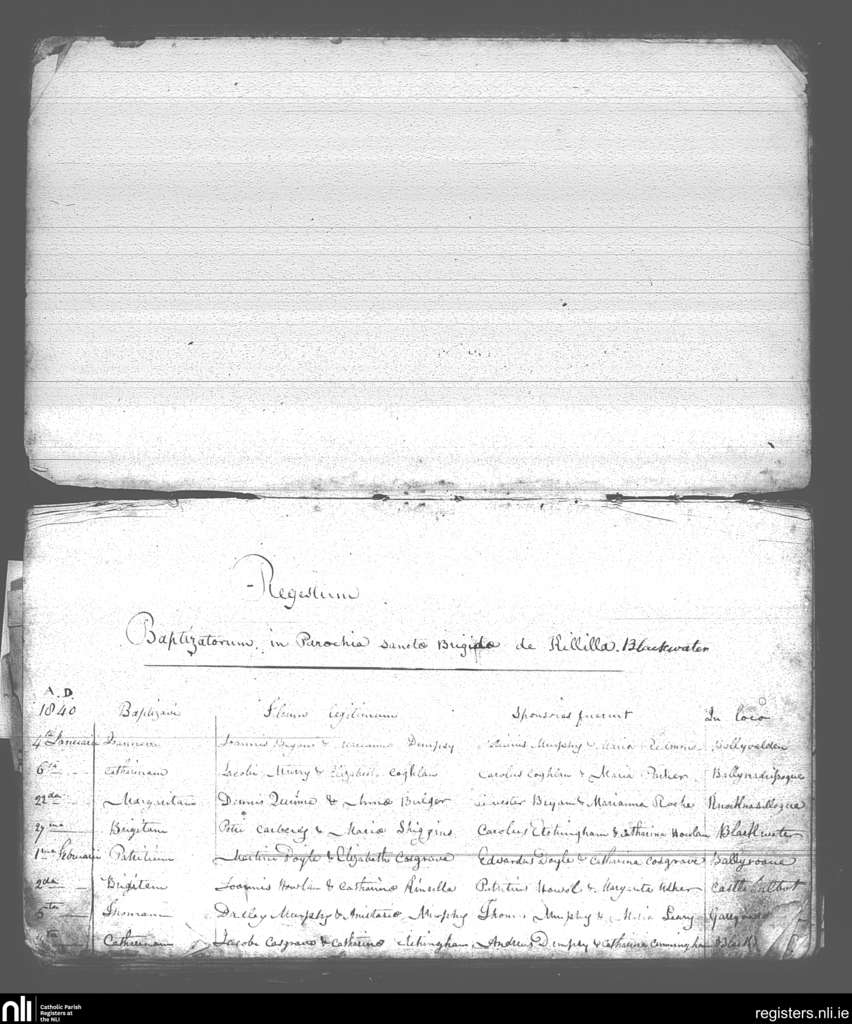 Registrum
Baptizatorum, in Parochia Sanctæ Brigidæ de Killilla. Blackwater
A.D.
1840 Baptizavi Filium legitimum Sponsores fuerunt In loco
4ta Januarii Joannem Joannis & Dempsey Murphy & Maria Ballyvalden
6ta Catharinam Jacobi Murry & Elizabeth Coghlan Carolus Coghlan & Maria
22da Margaritam Dennis & Anna Bulger Bryan & Marianna Roche Knocknasillogue
27ma Brigitam Petri Carberry & Maria Carolus Etchingham & Catharina Howlan Blackwater
1ma Februarii Patritium Martini Doyle & Elizabetha Cosgrave Edwardus Doyle & Catharina Cosgrave Ballyroane
2da Brigitam Joannis Howlan & Catharina Kinsella Patritius & Margarita Castle Talbot
Thomam Murphy & Anastasia Murphy Thomas Murphy & Maria Leary
Catharinam Jacobi Cosgrave & Catharina Etchingham Andreas Dempsy & Catharina Cunningham Black
nli
Catholic Parish
Registers at
the NLI
registers.nli.ie